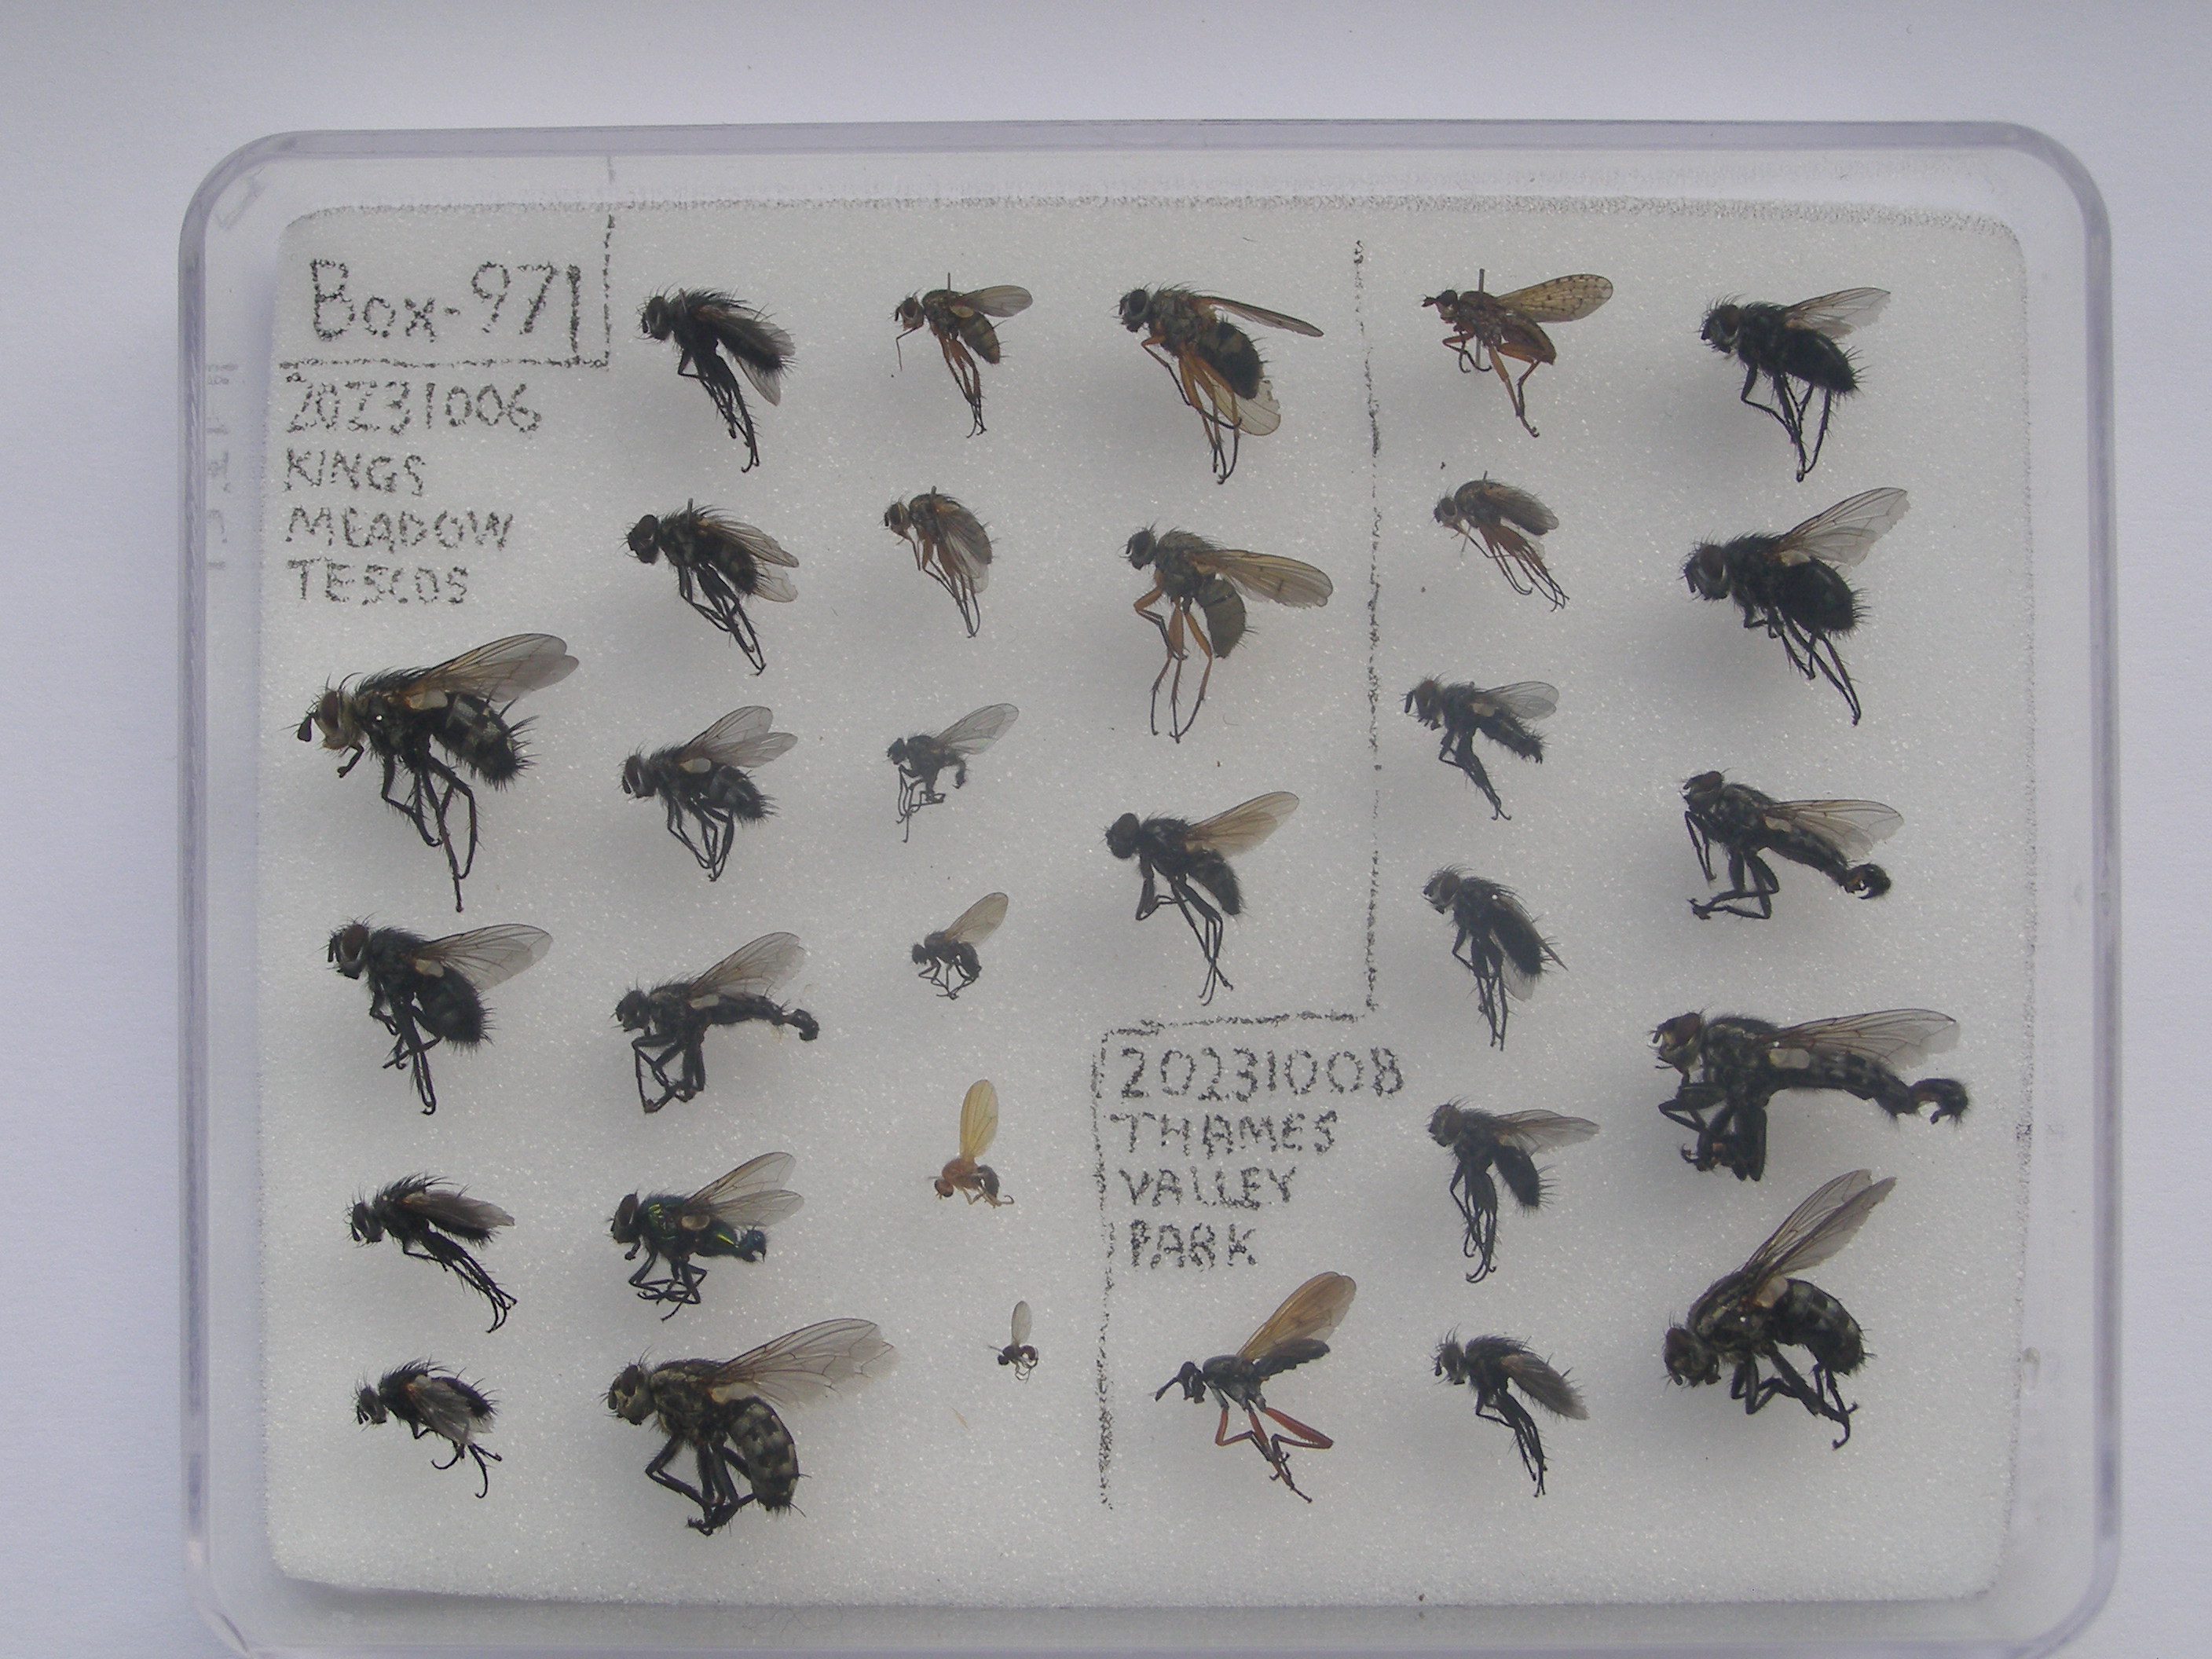 Box-971
20231006
KINGS
MEADOW
TESCOS
20231008
THAMES
VALLEY
PARK